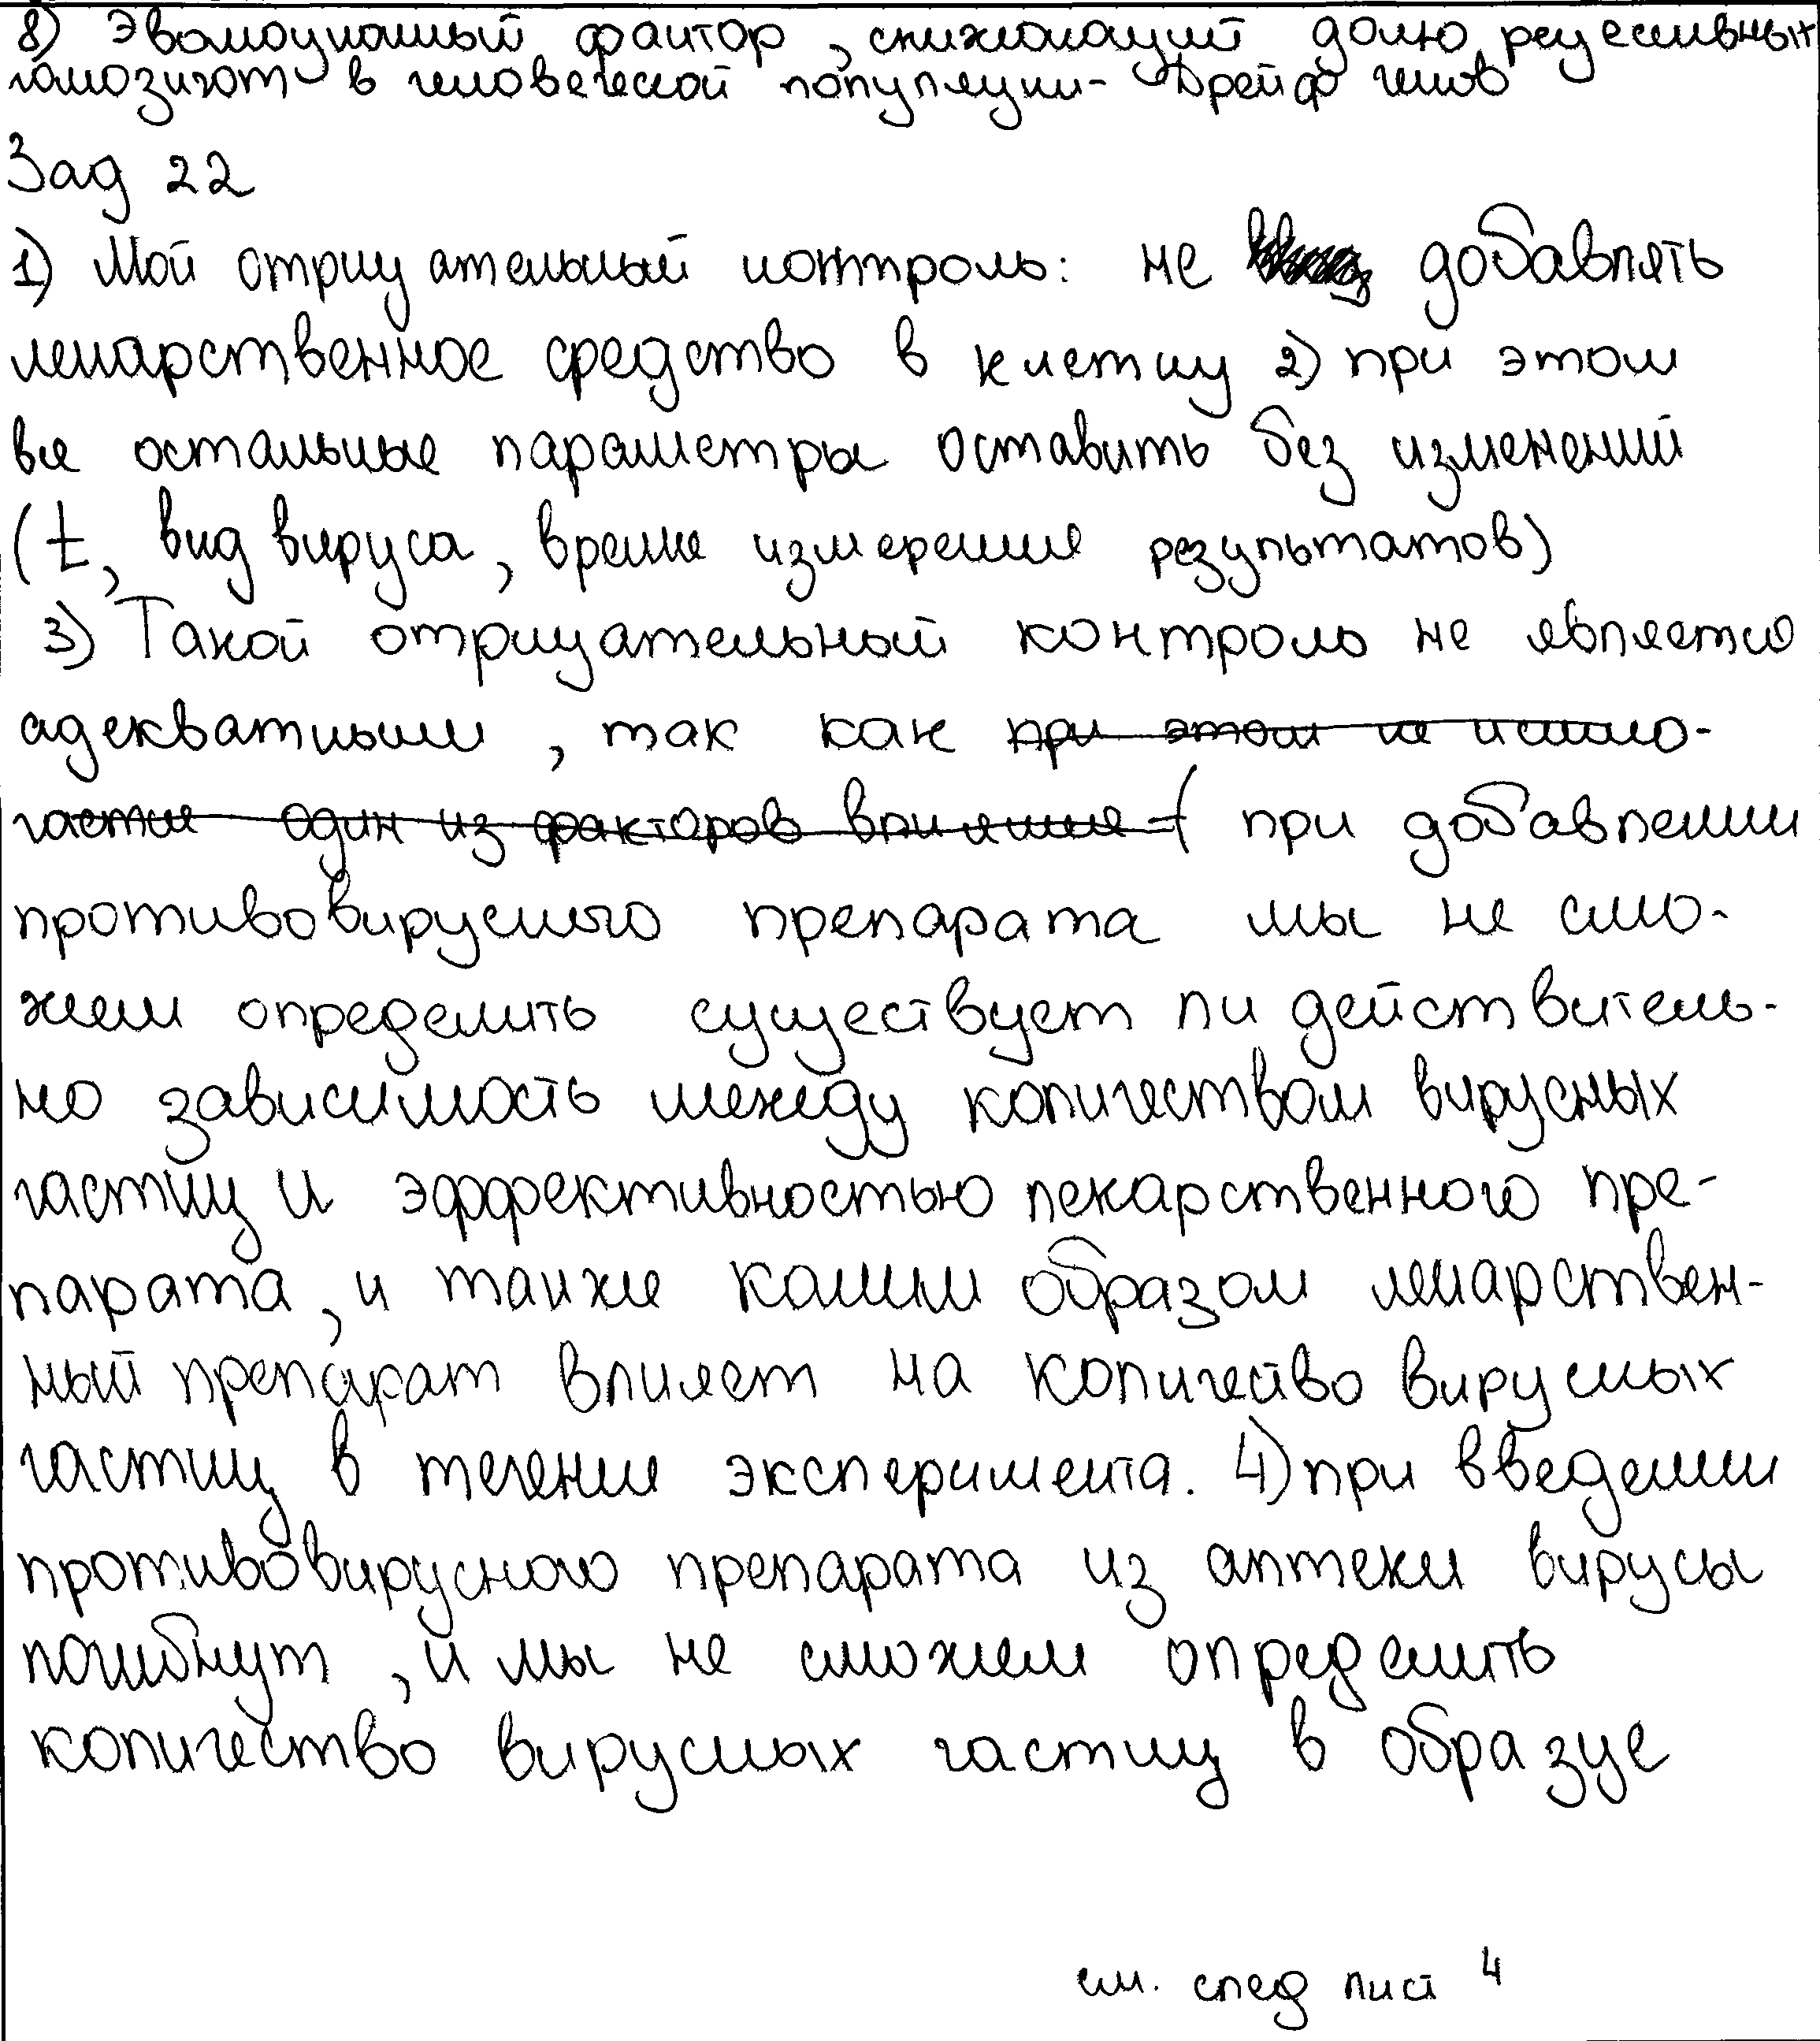 8) Эволюционный фактор, снижающий долю рецессивных
гомозигот в человеческой популяции - Дрейф генов
Зад 22
1) Мой отрицательный контроль: не добавлять
лекарственное средство в клетку 2) при этом
все остальные параметры оставить без изменений
(t, вид вируса, время измерения результатов)
3) Такой отрицательный контроль не является
адекватным, так как при этом не исклю-
чается один из факторов влияния - ( при добавлении
противовирусного препарата мы не смо-
жем определить существует ли действитель-
но зависимость между количеством вирусных
частиц и эффективностью лекарственного пре-
парата, и также каким образом лекарствен-
ный препарат влияет на количество вирусных
частиц в течении эксперимента. 4) при введении
противовирусного препарата из аптеки вирусы
погибнут, и мы не сможем определить
количество вирусных частиц в образце
см. след лист 4